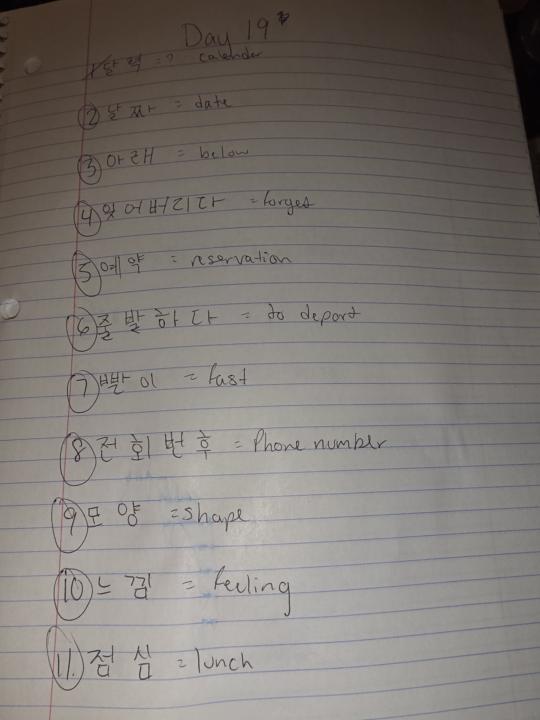 Day 19
1 달력 = ? calender
2 날짜 = date
3 아래 = below
4 잊어버리다 = forges
5 예약 = reservation
6 출발하다 = to depart
7 빨이 = fast
8 전회번후 = Phone number
9 모양 = shape
10 느낌 = feeling
11. 점심 = lunch